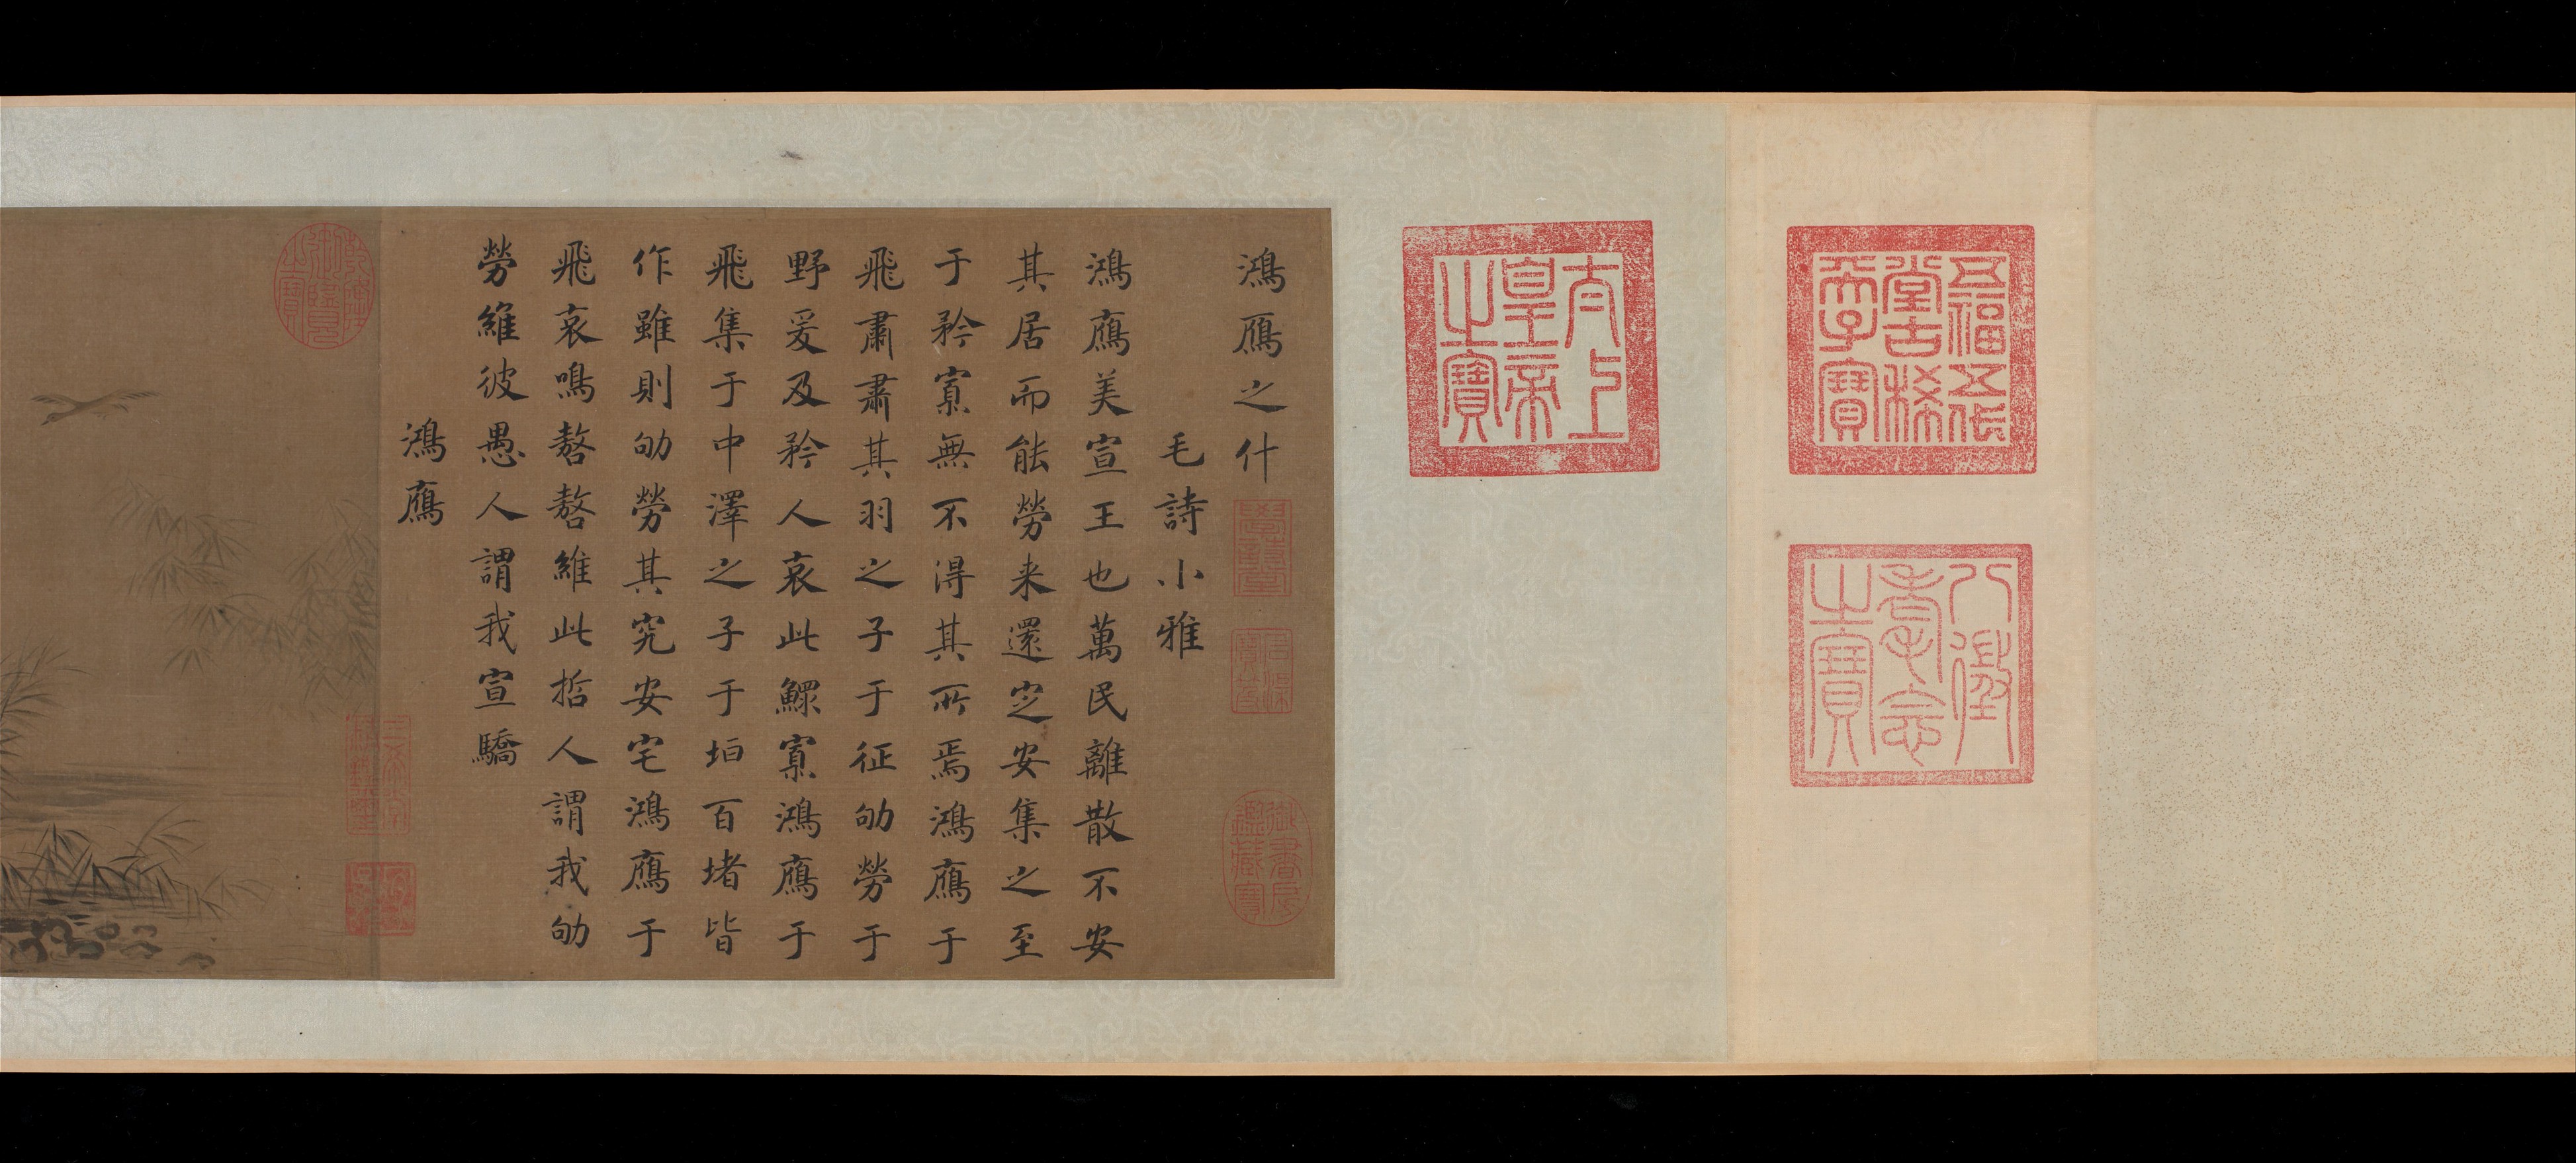 五福五代
堂古稀
天子寶
八徵
耄念
之寶
太上
皇帝
之寶
鴻鴈之什
毛詩小雅
鴻鴈美宣王也萬民離散不安
其居而能勞来還㝎安集之至
于矜寡無不得其所焉鴻鴈于
飛肅肅其羽之子于征劬勞于
野爰及矜人哀此鰥寡鴻鴈于
飛集于中澤之子于垣百堵皆
作雖則劬勞其究安宅鴻鴈于
飛哀鳴嗸嗸維此哲人謂我劬
勞維彼愚人謂我宣驕
鴻鴈
學詩堂
石渠
寶笈
御書房
鑑藏寶
乾隆
御覽
之寶